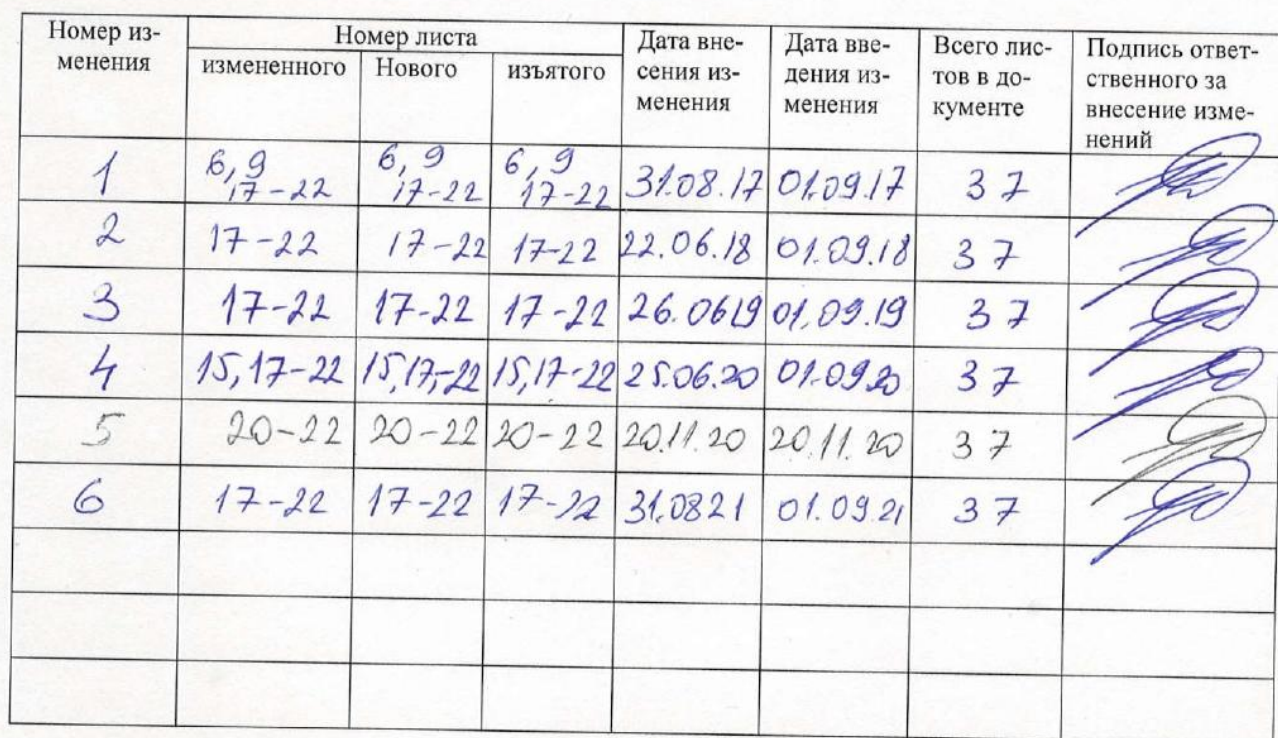 Номер из-
менения
Номер листа
измененного
Нового
изъятого
Дата вне-
сения из-
менения
Дата вве-
дения из-
менения
Всего лис-
тов в до-
кументе
Подпись ответ-
ственного за
внесение изме-
нений
1 6, 9 6, 9 6, 9 31.08.17 01.09.17 37
,17-22 ,17-22 17-22
2 17-22 17-22 17-22 22.06.18 01.09.18 37
3 17-22 17-22 17-22 26.0619 01.09.19 37
4 15,17-22 15,17-22 15,17-22 25.06.20 01.09.20 37
5 20-22 20-22 20-22 20.11.20 20.11.20 37
6 17-22 17-22 17-22 31.0821 01.09.21 37